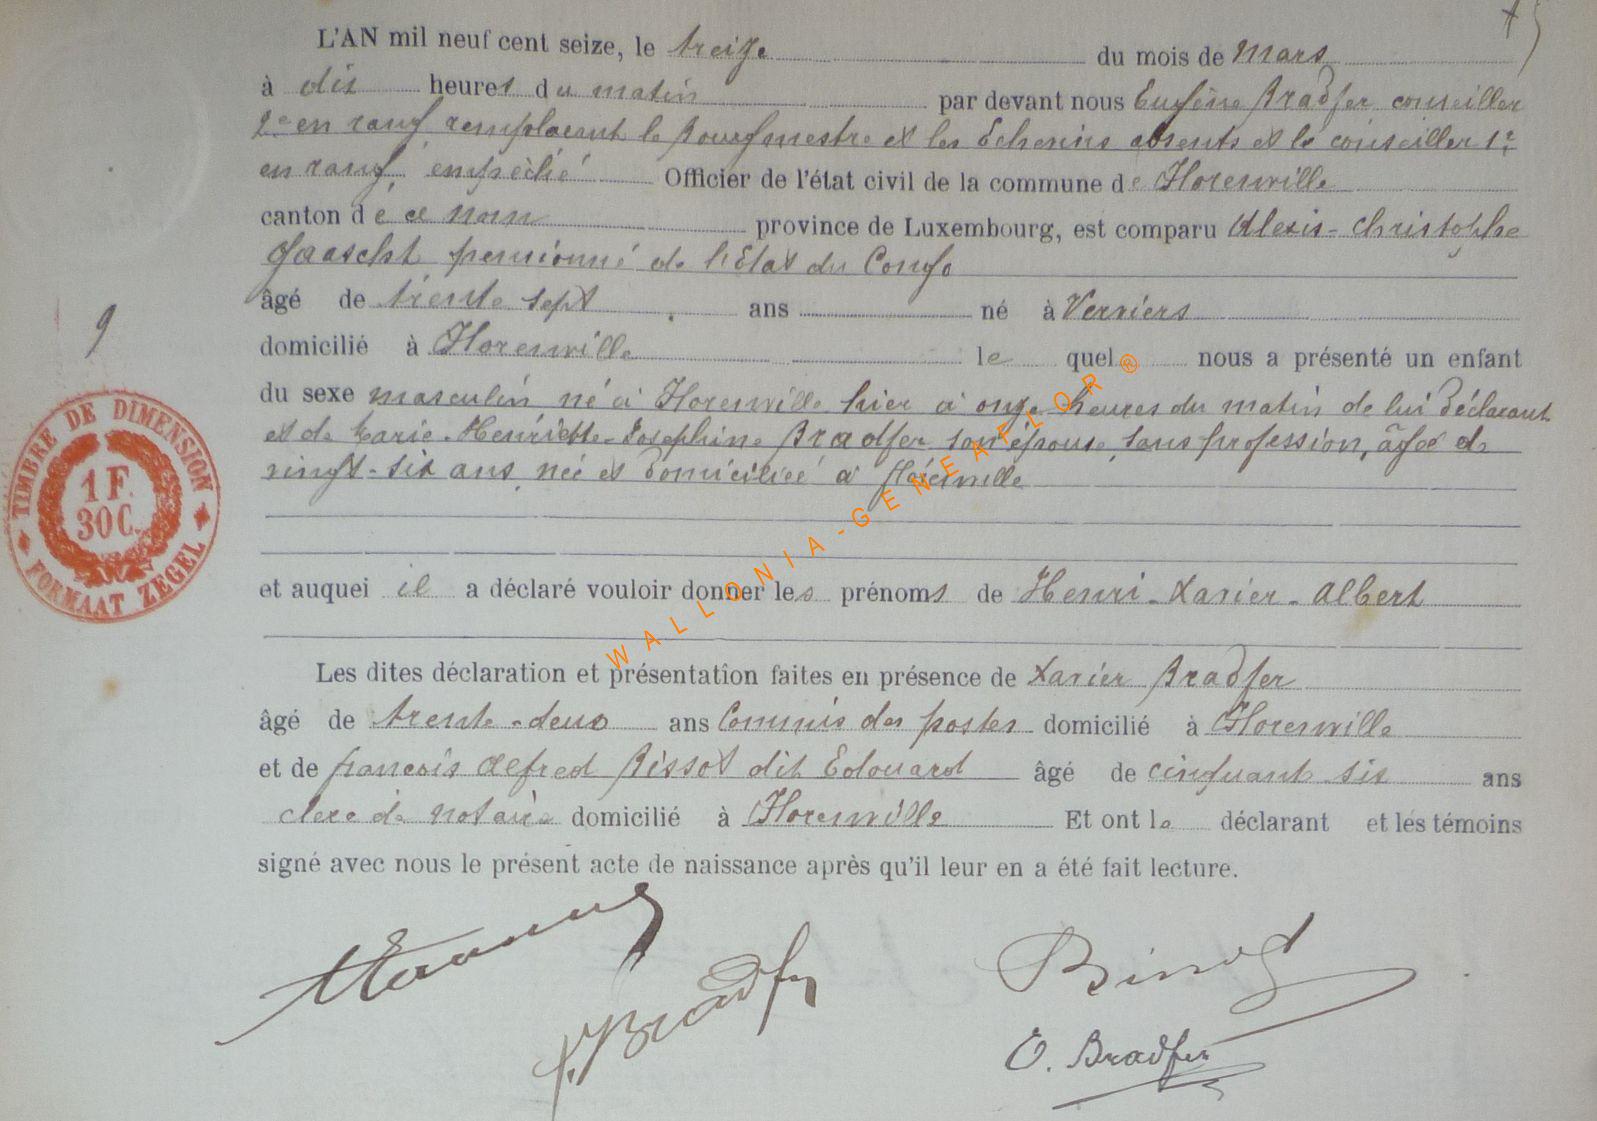 L'AN mil neuf cent seize, le treize du mois de mars
à dix heures du matin par devant nous Eugène Bradfer conseiller
2e en rang remplaçant le Bourgmestre et les Echevins absents et le conseiller 1r
en rang, empêché Officier de l'état civil de la commune de Florenville
canton de ce nom province de Luxembourg, est comparu Alexis-Christophe
pensionné de l'Etat du Congo
âgé de trente sept ans né à Verviers
domicilié à Florenville le quel nous a présenté un enfant
du sexe masculin né à Florenville hier à onze heures du matin de lui déclarant
et de Marie-Henriette-Josephine Bradfer son épouse, sans profession, âgée de
vingt-six ans, née et domiciliée à Florenville
et auquel il a déclaré vouloir donner les prénoms de Henri-Xavier-Albert
Les dites déclaration et présentation faites en présence de Xavier Bradfer
âgé de trente-deux ans Commis des postes domicilié à Florenville
et de françois Alfred Bissot dit Edouard âgé de cinquant six ans
clerc de notaire domicilié à Florenville Et ont le déclarant et les témoins
signé avec nous le présent acte de naissance après qu'il leur en a été fait lecture.
X. Bradfer
Bissot
E. Bradfer
9
TIMBRE DE DIMENSION
1 F.
30 C.
FORMAAT ZEGEL
WALLONIA-GENEAFLOR®